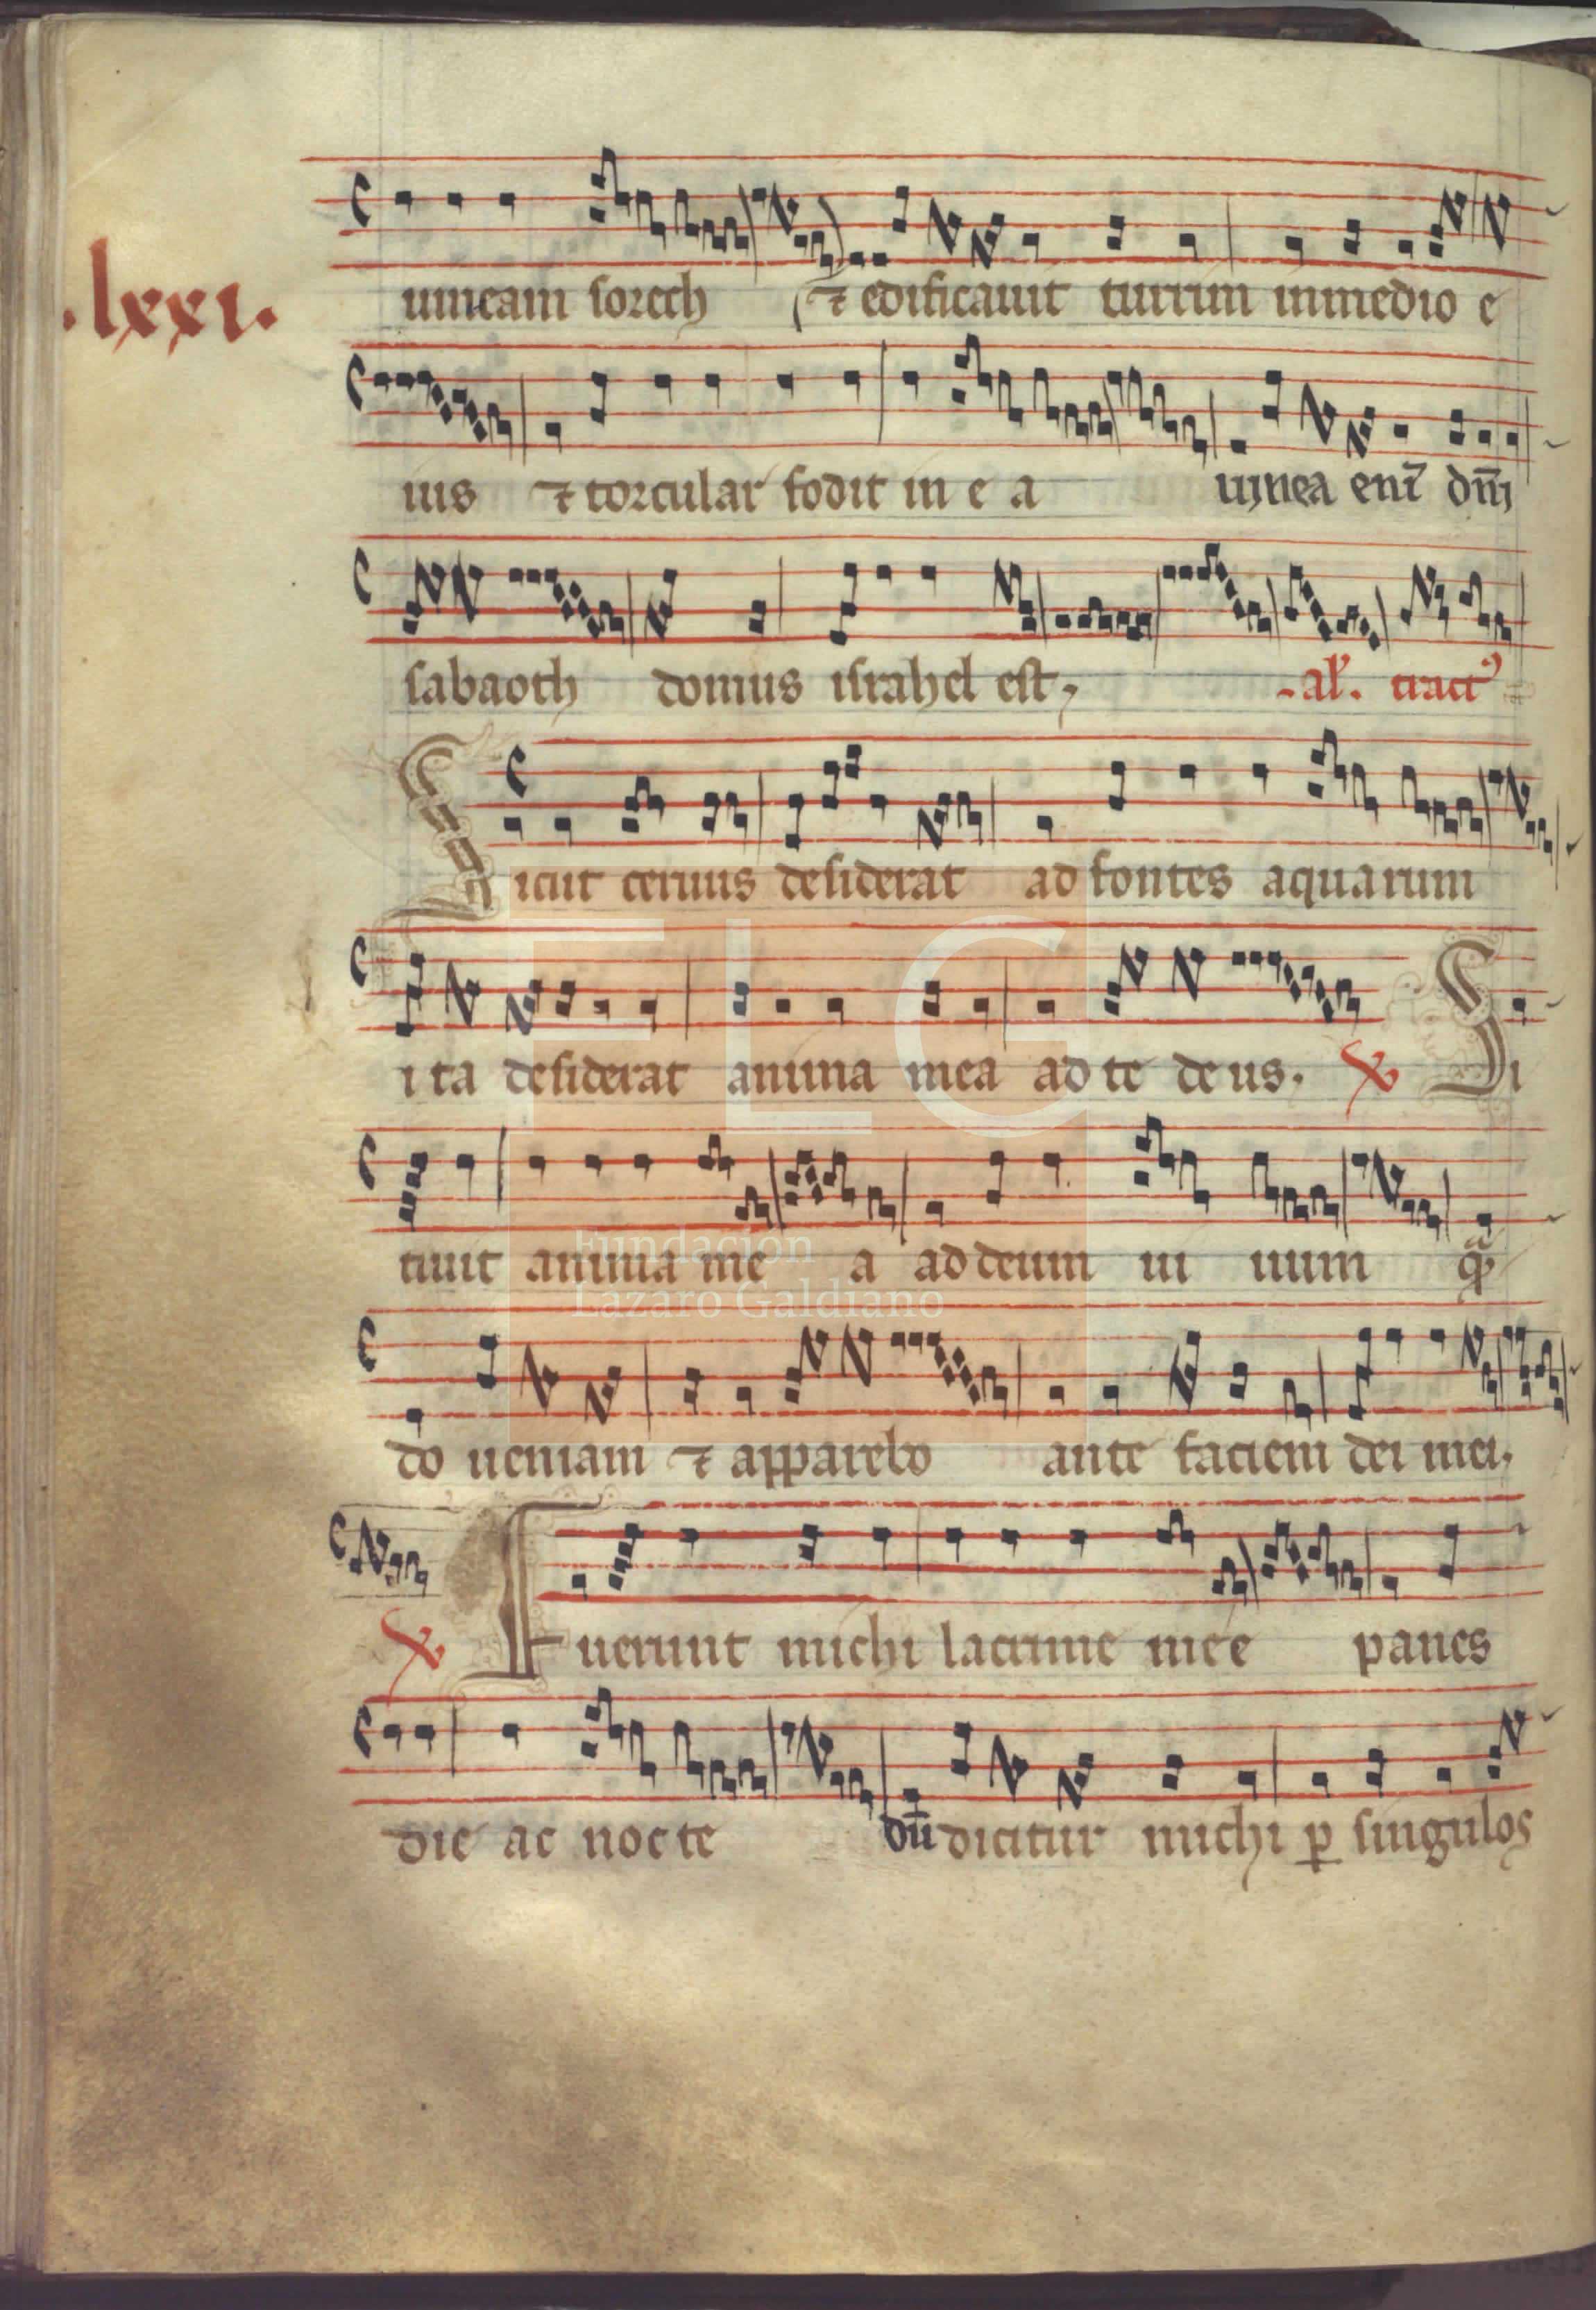 .lxxi.
uineam sorech ⁊ edificauit turrim inmedio e
ius ⁊ torcular fodit in e a uinea eni̅ dn̅i
sabaoth domus israhel est, al'. tract9
Sicut ceruus desiderat ad fontes aquarum
ita desiderat anima mea ad te deus. ℣ Si
tiuit anima me a ad deum ui uum qͣ
do ueniam ⁊ apparebo ante faciem dei mei,
℣ Fuerunt michi lacrime mee panes
die ac nocte du̅ dicitur michi ꝑ singulos
FLG
Fundación
Lázaro Galdiano